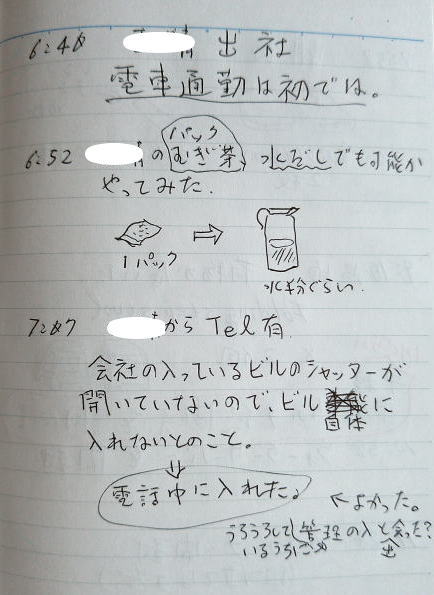 6:40 出社
電車通勤は初では。
6:52 のパックむぎ茶、水だしでも可能か
やってみた.
1パック ⇨ 水半分ぐらい.
7:07 からTel有.
会社の入っているビルのシャッターが
開いていないので、ビル自体に
入れないとのこと。
⇓
電話中に入れた。 ←よかった。
うろうろして 管理の人と会った?
いるうちに 出